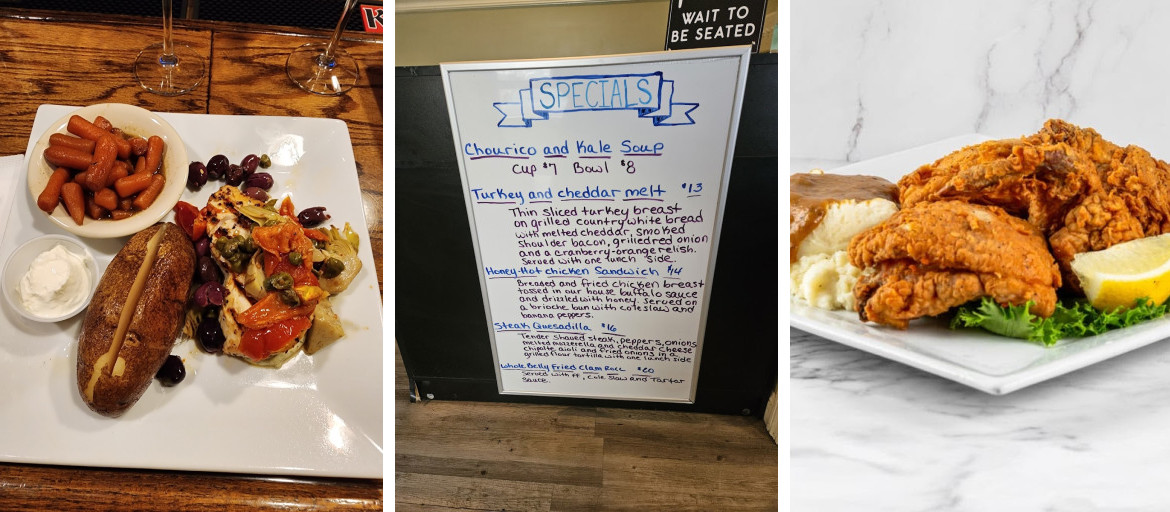 K
WAIT TO
BE SEATED
SPECIALS
Chourico and Kale Soup
Cup $7 Bowl $8
Turkey and cheddar melt $13
Thin sliced turkey breast
on grilled country white bread
with melted cheddar, smoked
shoulder bacon, grilled red onion
and a cranberry-orange relish.
Served with one lunch side.
Honey-Hot chicken Sandwich $14
Breaded and fried chicken breast
tossed in our house buffalo sauce
and drizzled with honey. Served on
a brioche bun with coleslaw and
banana peppers.
Steak Quesadilla $16
Tender shaved steak, peppers, onions
melted mozzerella and cheddar cheese
chipotle aioli and fried onions in a
grilled flour tortilla with one lunch side
Whole Belly Fried Clam Roll $20
Served with FF, Cole Slaw and Tartar
Sauce.